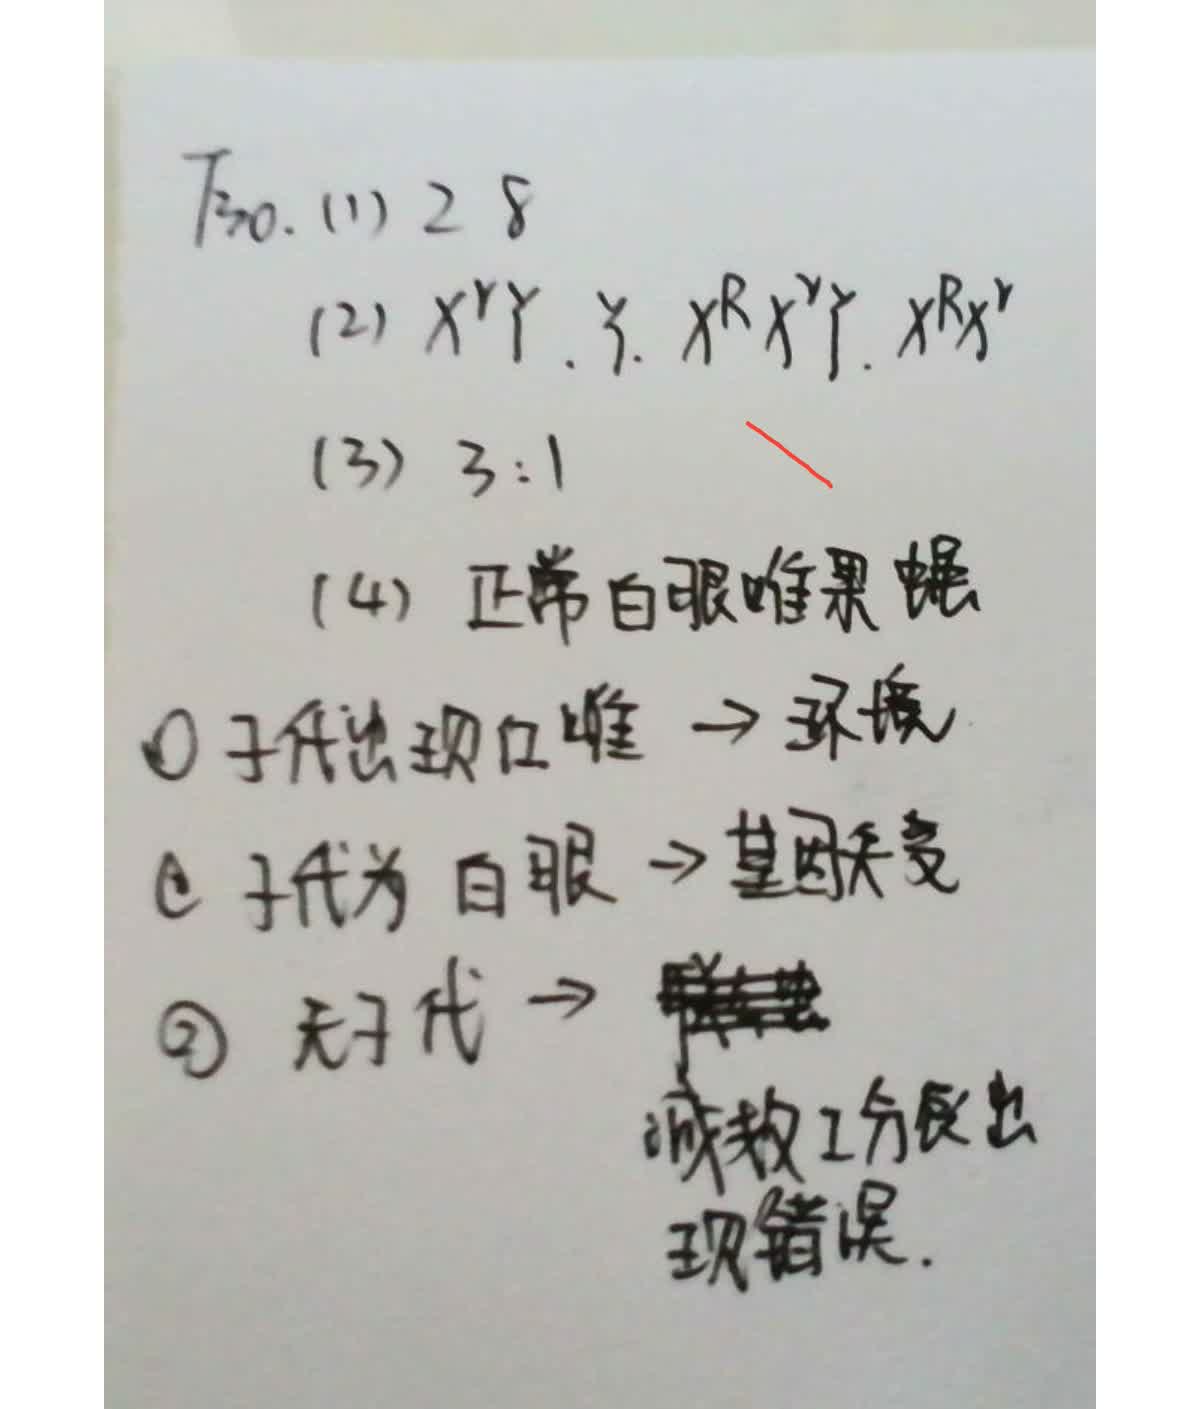 T30. (1) 2 8
(2) XʳY . Y. XᴿXʳY. XᴿXʳ
(3) 3:1
(4) 正常白眼唯果蝇
① 子代出现红唯 → 环境
子代为 白眼 → 基因突变
③ 无子代 →
减数I分裂出
现错误.